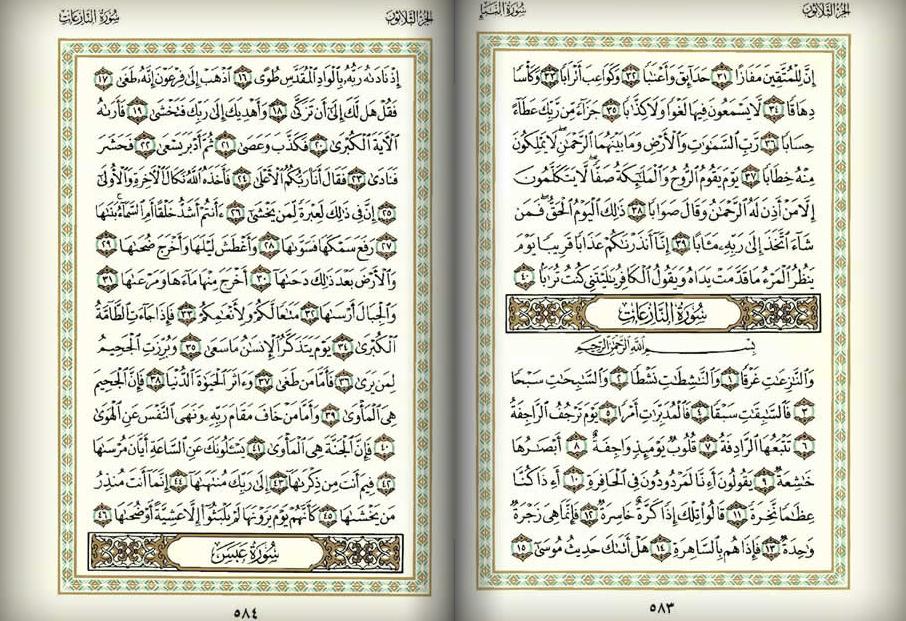 الجزء الثلاثون
سورة النبإ
إِنَّ لِلْمُتَّقِينَ مَفَازًا ٣١ حَدَآئِقَ وَأَعْنَٰبًا ٣٢ وَكَوَاعِبَ أَتْرَابًا ٣٣ وَكَأْسًا
دِهَاقًا ٣٤ لَّا يَسْمَعُونَ فِيهَا لَغْوًا وَلَا كِذَّٰبًا ٣٥ جَزَآءً مِّن رَّبِّكَ عَطَآءً
حِسَابًا ٣٦ رَّبِّ ٱلسَّمَٰوَٰتِ وَٱلْأَرْضِ وَمَا بَيْنَهُمَا ٱلرَّحْمَٰنِ ۖ لَا يَمْلِكُونَ
مِنْهُ خِطَابًا ٣٧ يَوْمَ يَقُومُ ٱلرُّوحُ وَٱلْمَلَٰٓئِكَةُ صَفًّا ۖ لَّا يَتَكَلَّمُونَ
إِلَّا مَنْ أَذِنَ لَهُ ٱلرَّحْمَٰنُ وَقَالَ صَوَابًا ٣٨ ذَٰلِكَ ٱلْيَوْمُ ٱلْحَقُّ ۖ فَمَن
شَآءَ ٱتَّخَذَ إِلَىٰ رَبِّهِۦ مَـَٔابًا ٣٩ إِنَّآ أَنذَرْنَٰكُمْ عَذَابًا قَرِيبًا يَوْمَ
يَنظُرُ ٱلْمَرْءُ مَا قَدَّمَتْ يَدَاهُ وَيَقُولُ ٱلْكَافِرُ يَٰلَيْتَنِى كُنتُ تُرَٰبًۢا ٤٠
سورة النازعات
بِسْمِ ٱللَّهِ ٱلرَّحْمَٰنِ ٱلرَّحِيمِ
وَٱلنَّٰزِعَٰتِ غَرْقًا ١ وَٱلنَّٰشِطَٰتِ نَشْطًا ٢ وَٱلسَّٰبِحَٰتِ سَبْحًا
٣ فَٱلسَّٰبِقَٰتِ سَبْقًا ٤ فَٱلْمُدَبِّرَٰتِ أَمْرًا ٥ يَوْمَ تَرْجُفُ ٱلرَّاجِفَةُ
٦ تَتْبَعُهَا ٱلرَّادِفَةُ ٧ قُلُوبٌ يَوْمَئِذٍ وَاجِفَةٌ ٨ أَبْصَٰرُهَا
خَٰشِعَةٌ ٩ يَقُولُونَ أَءِنَّا لَمَرْدُودُونَ فِى ٱلْحَافِرَةِ ١٠ أَءِذَا كُنَّا
عِظَٰمًا نَّخِرَةً ١١ قَالُوا۟ تِلْكَ إِذًا كَرَّةٌ خَاسِرَةٌ ١٢ فَإِنَّمَا هِىَ زَجْرَةٌ
وَٰحِدَةٌ ١٣ فَإِذَا هُم بِٱلسَّاهِرَةِ ١٤ هَلْ أَتَىٰكَ حَدِيثُ مُوسَىٰٓ ١٥
٥٨٣
الجزء الثلاثون
سورة النازعات
إِذْ نَادَىٰهُ رَبُّهُۥ بِٱلْوَادِ ٱلْمُقَدَّسِ طُوًى ١٦ ٱذْهَبْ إِلَىٰ فِرْعَوْنَ إِنَّهُۥ طَغَىٰ ١٧
فَقُلْ هَل لَّكَ إِلَىٰٓ أَن تَزَكَّىٰ ١٨ وَأَهْدِيَكَ إِلَىٰ رَبِّكَ فَتَخْشَىٰ ١٩ فَأَرَىٰهُ
ٱلْـَٔايَةَ ٱلْكُبْرَىٰ ٢٠ فَكَذَّبَ وَعَصَىٰ ٢١ ثُمَّ أَدْبَرَ يَسْعَىٰ ٢٢ فَحَشَرَ
فَنَادَىٰ ٢٣ فَقَالَ أَنَا۠ رَبُّكُمُ ٱلْأَعْلَىٰ ٢٤ فَأَخَذَهُ ٱللَّهُ نَكَالَ ٱلْـَٔاخِرَةِ وَٱلْأُولَىٰٓ
٢٥ إِنَّ فِى ذَٰلِكَ لَعِبْرَةً لِّمَن يَخْشَىٰٓ ٢٦ ءَأَنتُمْ أَشَدُّ خَلْقًا أَمِ ٱلسَّمَآءُ ۚ بَنَىٰهَا
٢٧ رَفَعَ سَمْكَهَا فَسَوَّىٰهَا ٢٨ وَأَغْطَشَ لَيْلَهَا وَأَخْرَجَ ضُحَىٰهَا ٢٩
وَٱلْأَرْضَ بَعْدَ ذَٰلِكَ دَحَىٰهَآ ٣٠ أَخْرَجَ مِنْهَا مَآءَهَا وَمَرْعَىٰهَا ٣١
وَٱلْجِبَالَ أَرْسَىٰهَا ٣٢ مَتَٰعًا لَّكُمْ وَلِأَنْعَٰمِكُمْ ٣٣ فَإِذَا جَآءَتِ ٱلطَّآمَّةُ
ٱلْكُبْرَىٰ ٣٤ يَوْمَ يَتَذَكَّرُ ٱلْإِنسَٰنُ مَا سَعَىٰ ٣٥ وَبُرِّزَتِ ٱلْجَحِيمُ
لِمَن يَرَىٰ ٣٦ فَأَمَّا مَن طَغَىٰ ٣٧ وَءَاثَرَ ٱلْحَيَوٰةَ ٱلدُّنْيَا ٣٨ فَإِنَّ ٱلْجَحِيمَ
هِىَ ٱلْمَأْوَىٰ ٣٩ وَأَمَّا مَنْ خَافَ مَقَامَ رَبِّهِۦ وَنَهَى ٱلنَّفْسَ عَنِ ٱلْهَوَىٰ
٤٠ فَإِنَّ ٱلْجَنَّةَ هِىَ ٱلْمَأْوَىٰ ٤١ يَسْـَٔلُونَكَ عَنِ ٱلسَّاعَةِ أَيَّانَ مُرْسَىٰهَا
٤٢ فِيمَ أَنتَ مِن ذِكْرَىٰهَآ ٤٣ إِلَىٰ رَبِّكَ مُنتَهَىٰهَآ ٤٤ إِنَّمَآ أَنتَ مُنذِرُ
مَن يَخْشَىٰهَا ٤٥ كَأَنَّهُمْ يَوْمَ يَرَوْنَهَا لَمْ يَلْبَثُوٓا۟ إِلَّا عَشِيَّةً أَوْ ضُحَىٰهَا ٤٦
سورة عبس
٥٨٤